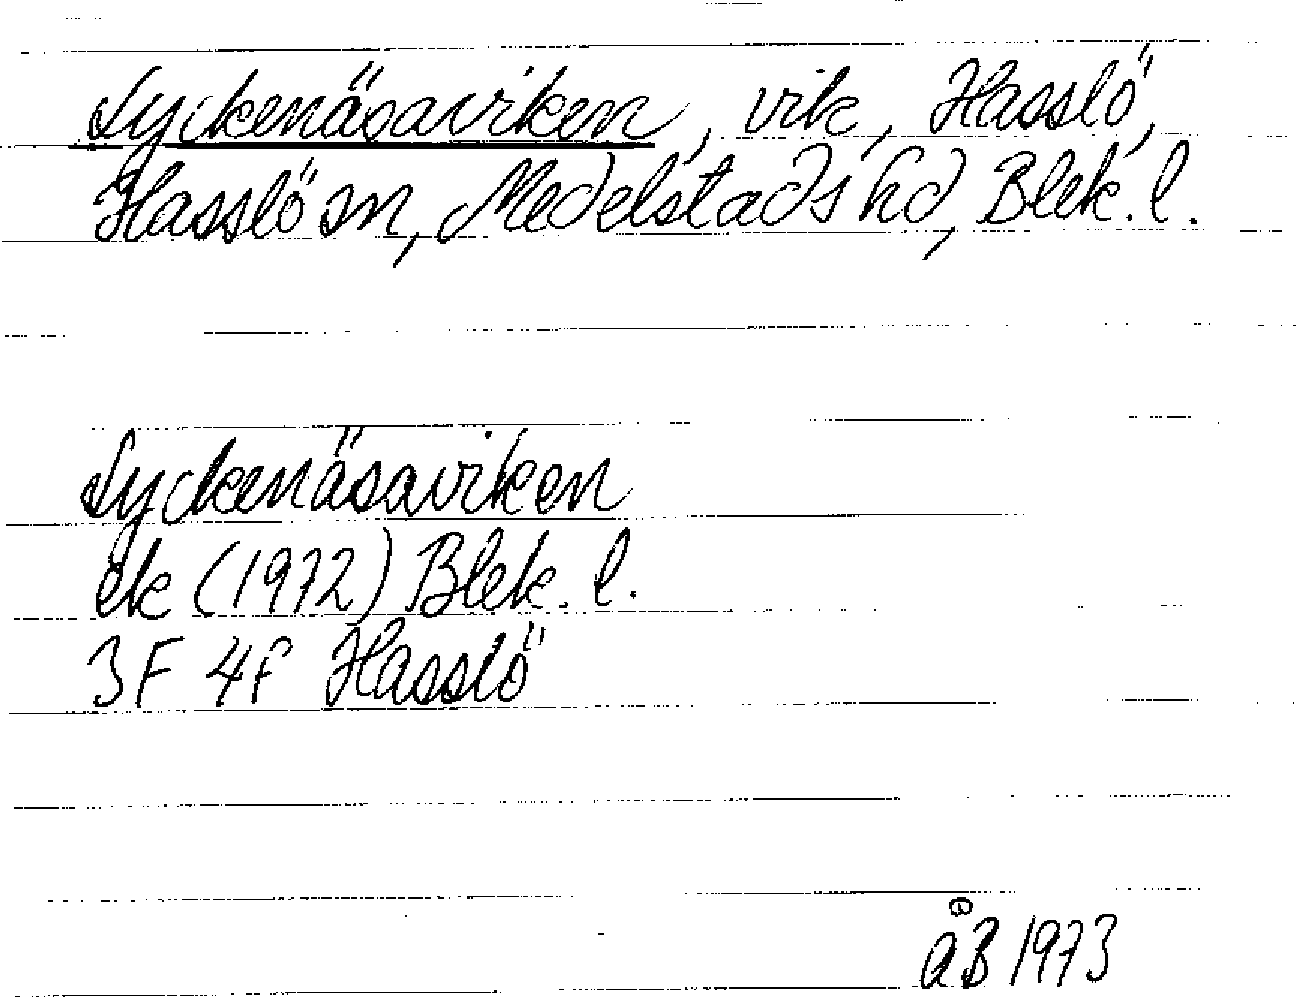 Lyckenäsaviken, vik, Hasslö,
Hasslö sn, Medelstads hd, Blek. l.
Lyckenäsaviken
ek (1972) Blek. l.
3F 4f Hasslö
åB 1973